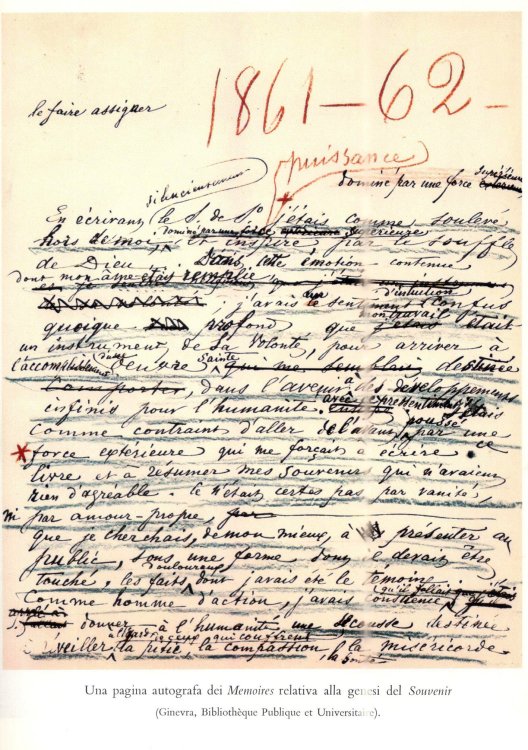 1861-62-
le faire assigner
puissance
silencieusement
dominé par une force supérieure
En écrivant, le S. de S.º j'étais comme soulevé
hors de moi, dominé par une force supérieure et inspiré par le souffle
de Dieu. Dans cette émotion continue
dont mon âme était remplie
d'intuition
j'avais un sentiment confus
quoique profond que mon travail était
un instrument de Sa Volonté, pour arriver à
l'accomplissement d'une œuvre Sainte qui me semblait destinée
dans l'avenir à des développements
infinis pour l'humanité. avec pressentiment j'étais
comme contraint d'aller de l'avant, poussé par une
force extérieure qui me forçait à écrire ce
livre et à résumer mes souvenirs qui n'avaient
rien d'agréable. Ce n'était certes pas par vanité,
ni par amour-propre, par
que je cherchais, de mon mieux, à présenter au
public, sous une forme dont je devait être
touché, les faits douloureux dont j'avais été le témoin
qu'il fallait que
Comme homme d'action, j'avais conscience
donner à l'humanité une secousse destinée
à l'égard de ceux qui souffrent
éveiller la pitié, la compassion, la miséricorde
la bonté
Una pagina autografa dei Memoires relativa alla genesi del Souvenir
(Ginevra, Bibliothèque Publique et Universitaire).